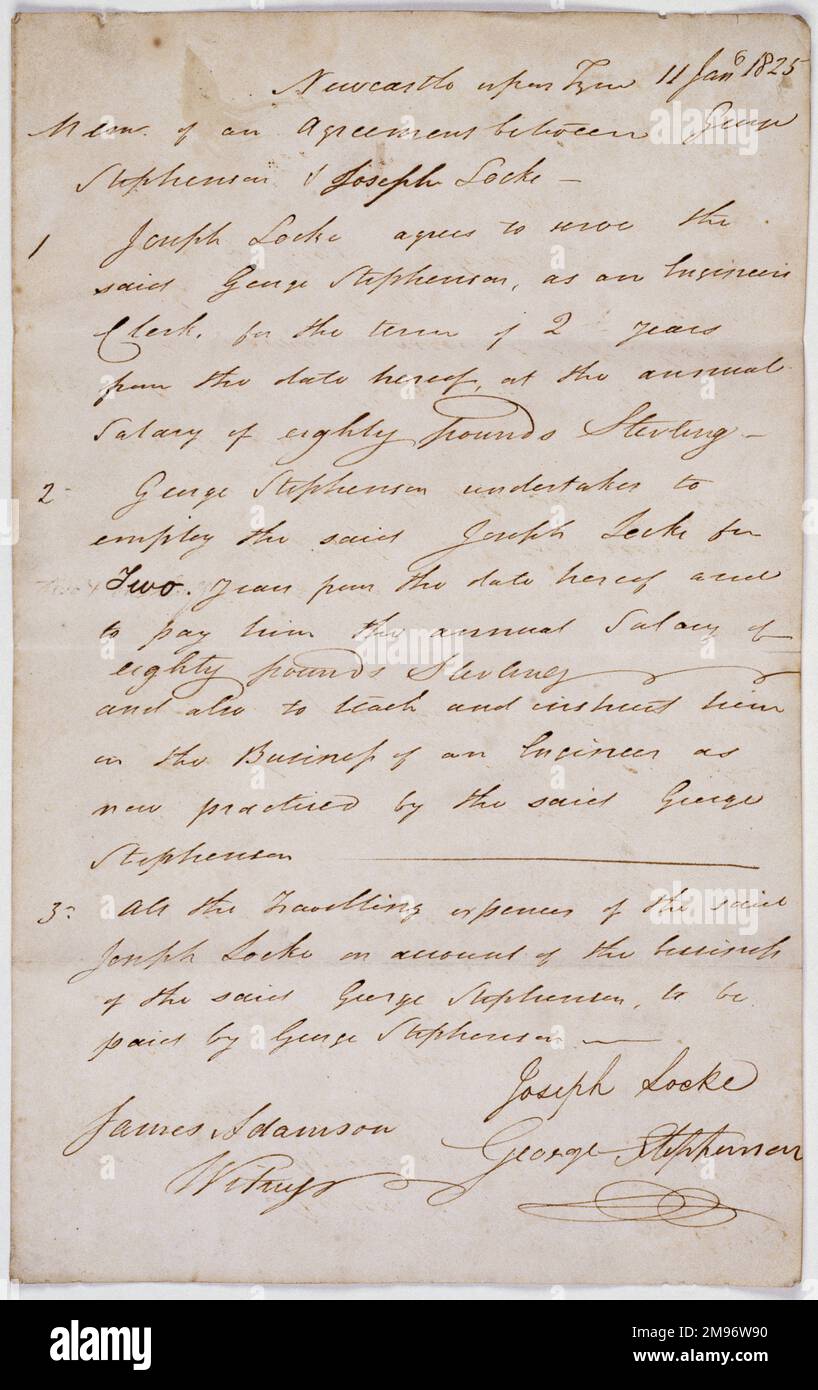 Newcastle upon Tyne 11 Jany 1825
Mem. of an Agreement between George
Stephenson & Joseph Locke —
1 Joseph Locke agrees to serve the
said George Stephenson, as an Engineers
Clerk, for the term of 2 years
from the date hereof, at the annual
Salary of eighty pounds Sterling —
2 George Stephenson undertakes to
employ the said Joseph Locke for
Two. Years from the date hereof and
to pay him the annual Salary of
eighty pounds Sterling
and also to teach and instruct him
in the Business of an Engineer as
now practised by the said George
Stephenson
3 All the Travelling expences of the said
Joseph Locke on account of the bussiness
of the said George Stephenson, to be
paid by George Stephenson —
Joseph Locke
James Adamson
George Stephenson
Witness
alamy
Image ID: 2M96W90
www.alamy.com